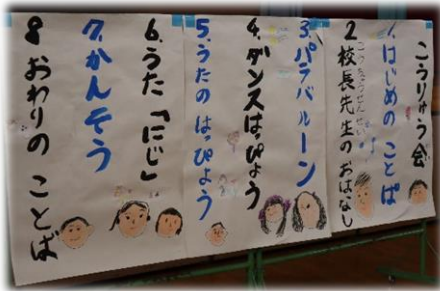 こうりゅう会
1.はじめの ことば
2.校長先生の おはなし
こうちょうせんせい
3.パラバルーン
4.ダンスはっぴょう
5.うたの はっぴょう
6.うた「にじ」
7.かんそう
8 おわりの ことば